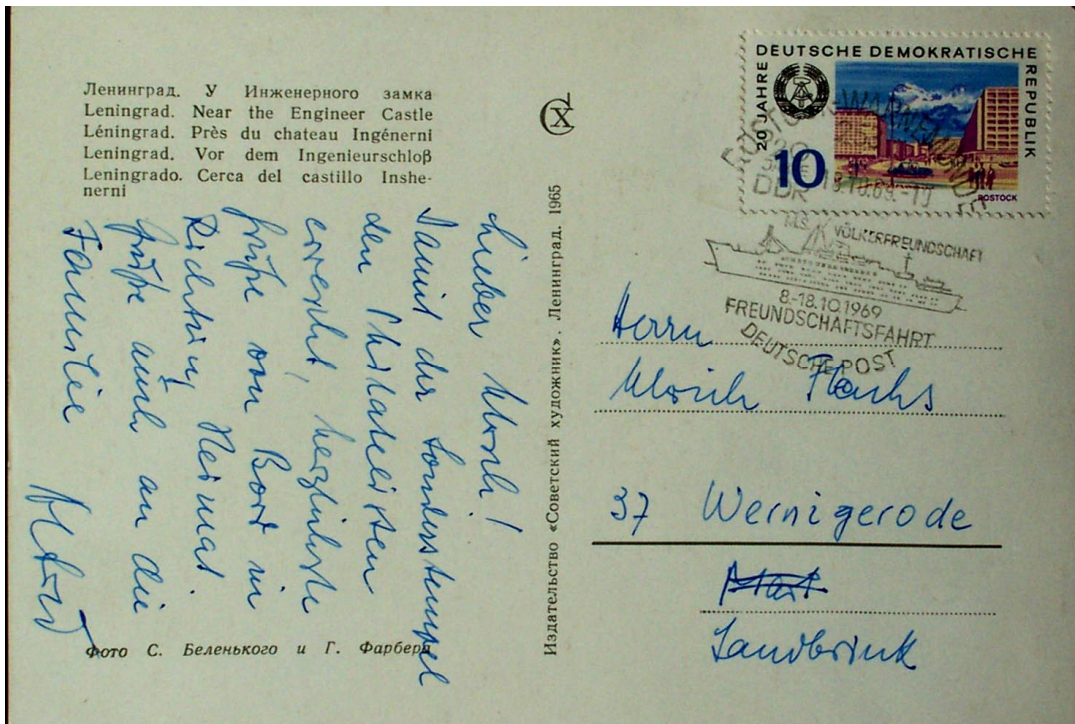 Ленинград. У Инженерного замка
Leningrad. Near the Engineer Castle
Léningrad. Près du chateau Ingénerni
Leningrad. Vor dem Ingenieurschloß
Leningrado. Cerca del castillo Inshe-
nerni
Lieber Ulrich!
Damit der Sonderstempel
den Philatelisten
erreicht, herzlichste
Grüße von Bord in
Richtung Heimat
Grüße auch an die
Familie
Фото С. Беленького и Г. Фарбера
Издательство «Советский художник». Ленинград. 1965
СХ
20 JAHRE DEUTSCHE DEMOKRATISCHE REPUBLIK
10
ROSTOCK
ROSTOCK-WARNEMÜNDE
20
JAHRE
DDR
18.10.69.-10
M.S. VÖLKERFREUNDSCHAFT
8.-18.10.1969
FREUNDSCHAFTSFAHRT
DEUTSCHE POST
Herrn
Ulrich Flachs
37 Wernigerode
Sandbrink